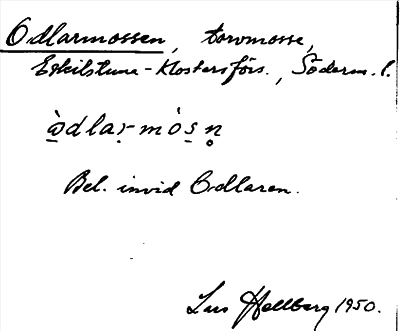 Odlarmossen, torvmosse,
Eskilstuna-Klosters förs., Söderm. l.
ò̱dlar-mó̱sn̥
Bel. invid Odlaren.
Lars Hellberg 1950.